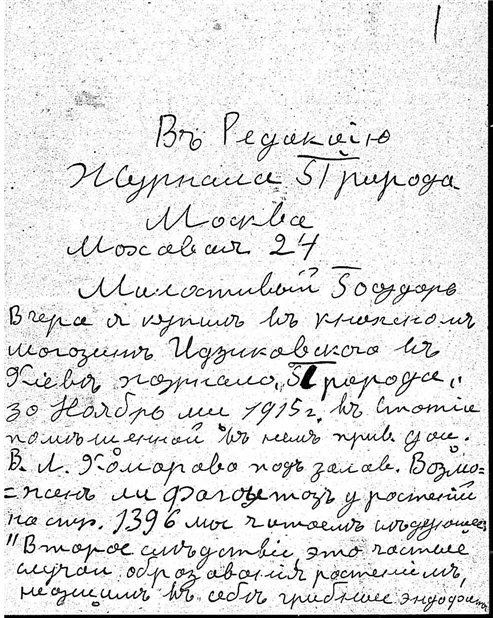 Въ Редакцію
Журнала Природа
Москва
Моховая 24
Милостивый Государь
Вчера я купилъ въ книжномъ
могозинѣ Идзиковского въ
Кіевѣ журнала „Природа„
за Ноябрь 1915 г. въ Статіе
помѣшенной въ немъ прив. доц.
В. Л. Комарова подъ заглав. Возмо=
=женъ ли Фагоцитозъ у растеній
на стр. 1396 мы читаемъ слѣдующее
"Второе слѣдствіе это частые
случаи образованія растеніемъ,
несущимъ въ себѣ грибные эндофиты